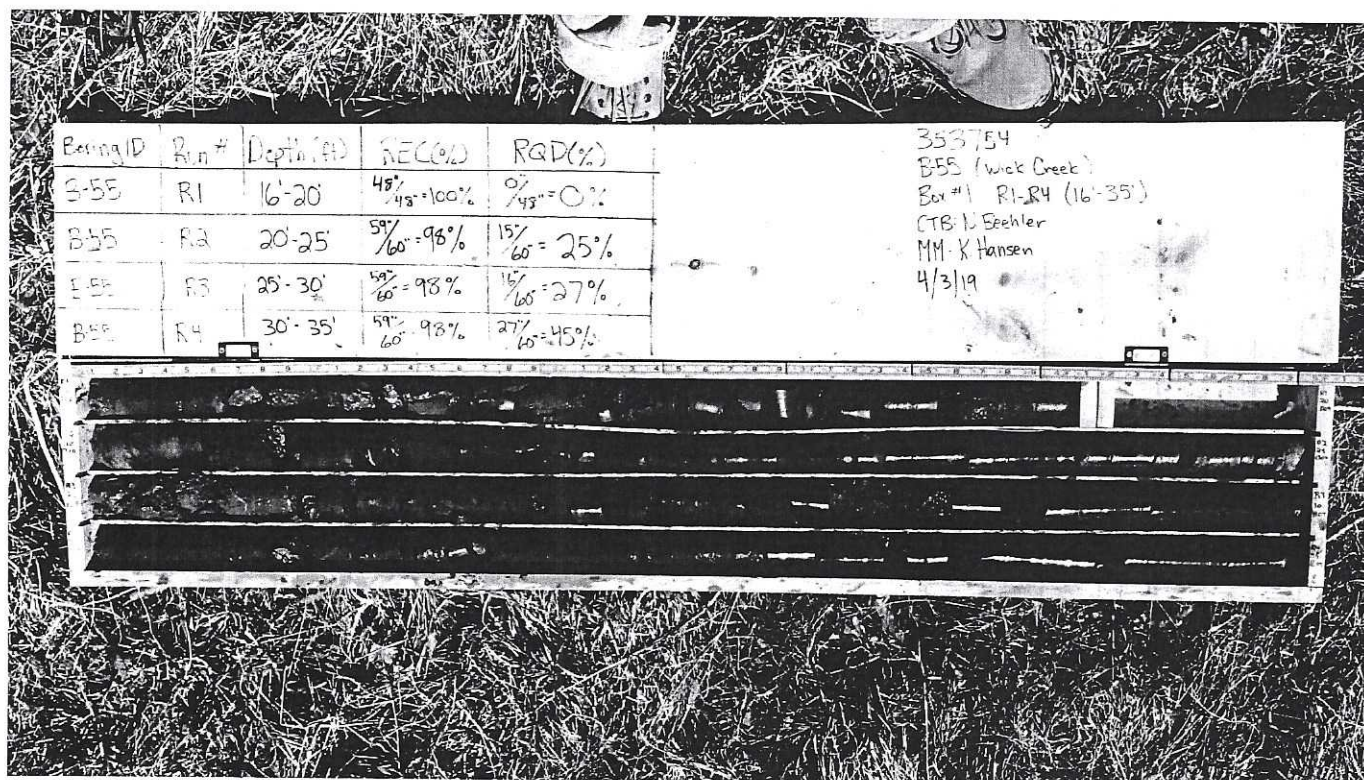 Boring ID Run # Depth (ft) REC(%) RQD(%)
B-55 R1 16'-20' 48"/48" = 100% 0"/48" = 0%
B-55 R2 20'-25' 59"/60" = 98% 15"/60" = 25%
B-55 R3 25'-30' 59"/60" = 98% 16"/60" = 27%
B-55 R4 30'-35' 59"/60" = 98% 27"/60" = 45%
353754
B-55 (Wick Creek)
Box #1 R1-R4 (16'-35')
CTB: N. Beehler
MM: K. Hansen
4/3/19